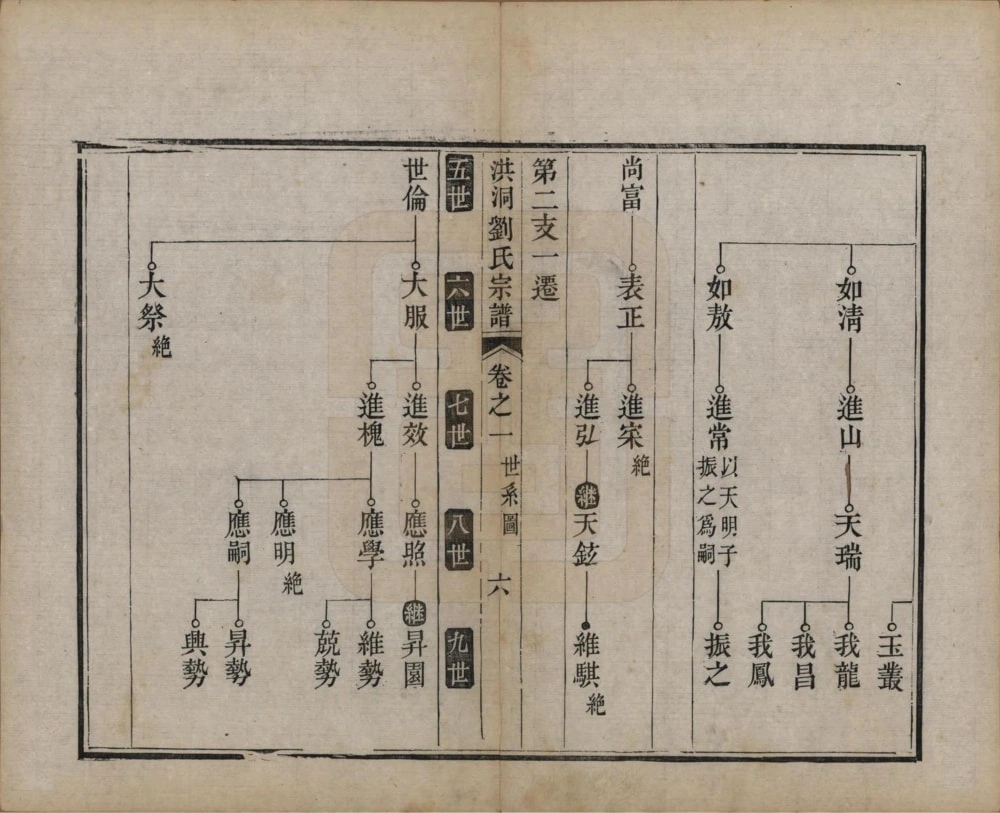 玉叢
如淸 進山 天瑞 我龍
我昌
我鳳
如敖 進常 以天明子振之爲嗣 振之
尚富 表正 進宋 絶
進弘 継 天鉉 維騏 絶
第二支一遷
洪洞劉氏宗譜 卷之一 世系圖 六
五世 六世 七世 八世 九世
世倫 大服 進效 應照 継 昇園
進槐 應學 維勢
兢勢
應明 絶
應嗣 昇勢
興勢
大祭 絶